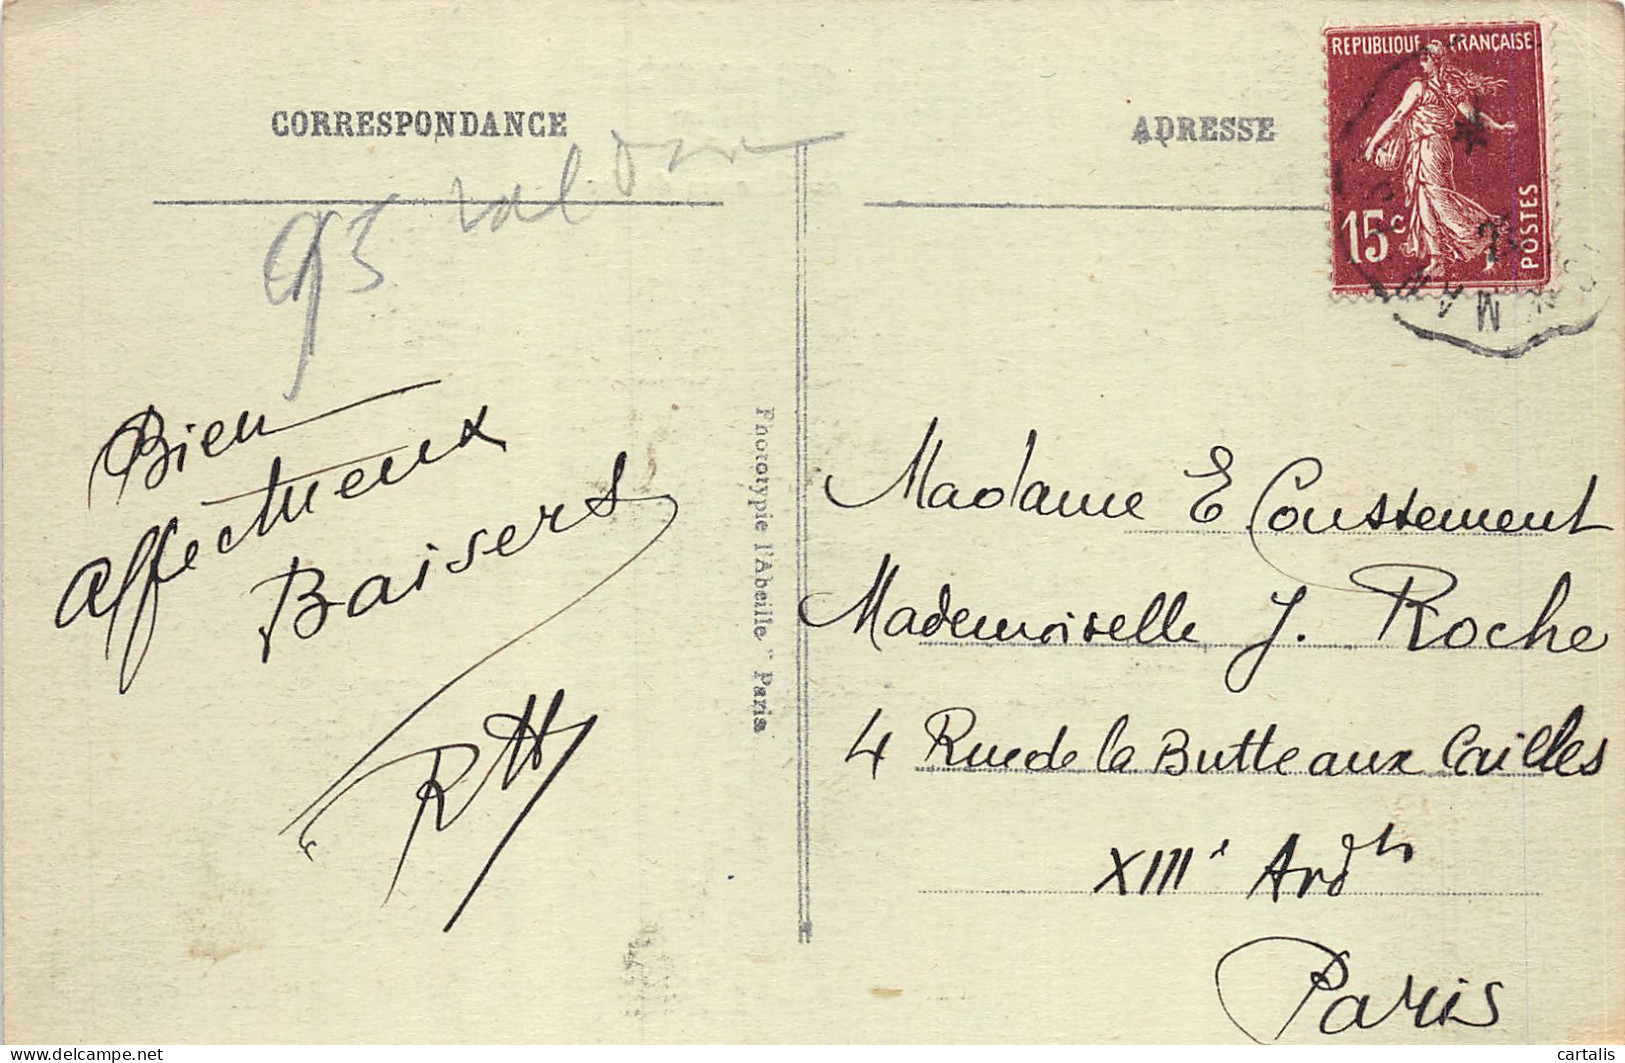 CORRESPONDANCE
95 val d'oise
Bien
affectueux
Baisers
RH
Phototypie l'Abeille" Paris
ADRESSE
REPUBLIQUE FRANÇAISE
15c
POSTES
Madame E Coustement
Mademoiselle J. Roche
4 Rue de la Butte aux Cailles
XIIIe Ardt
Paris
delcampe.net
cartalis